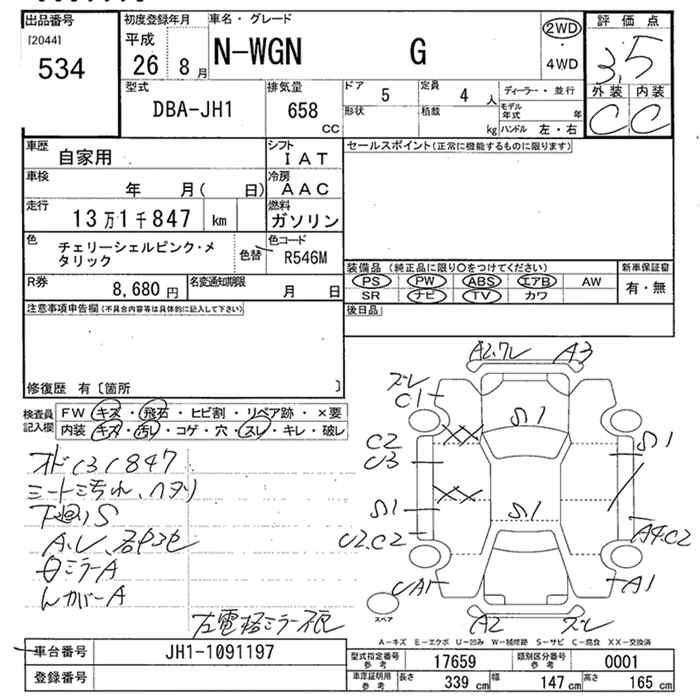 出品番号
[2044]
534
初度登録年月
平成
26 8月
車名・グレード
N-WGN G
2WD
・
4WD
評価点
3.5
外装 内装
C C
型式
DBA-JH1
排気量
658
cc
ドア
5
定員
4 人
形状
積載
kg
ディーラー・並行
モデル年式 年
ハンドル 左・右
車歴
自家用
シフト
IAT
車検
年 月( 日)
冷房
AAC
走行
13万1千847 km
燃料
ガソリン
色
チェリーシェルピンク・メ
タリック
色替
色コード
R546M
R券
8,680 円
名変通知期限
月 日
セールスポイント(正常に機能するものに限ります)
装備品 (純正品に限り○をつけてください)
PS PW ABS エアB AW
SR ナビ TV カワ
新車保証書
有・無
後日品
注意事項申告欄(不具合内容等は具体的に記入して下さい)
修復歴 有〔箇所 〕
検査員
記入欄
FW キズ・飛石・ヒビ割・リペア跡・×要
内装 キズ・汚レ・コゲ・穴・スレ・キレ・破レ
オド131847
シート汚れ、ヘタリ
下廻りS
A2,ズレ
A3
ズレ
C1
C2
S1
S1
S1
S1
A4.C2
A1
A2
ズレ
スペア
A-キズ E-エクボ U-凹み W-補修跡 S-サビ C-腐食 XX-交換済
車台番号
JH1-1091197
登録番号
型式指定番号
参考
17659
類別区分番号
参考
0001
車庫証明用
参考
長さ
339 cm
幅
147 cm
高さ
165 cm